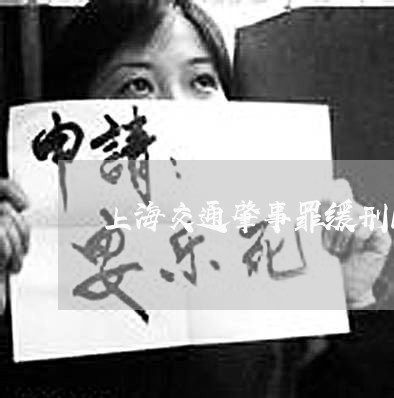 申請:
上海交通肇事罪缓刑
安乐死